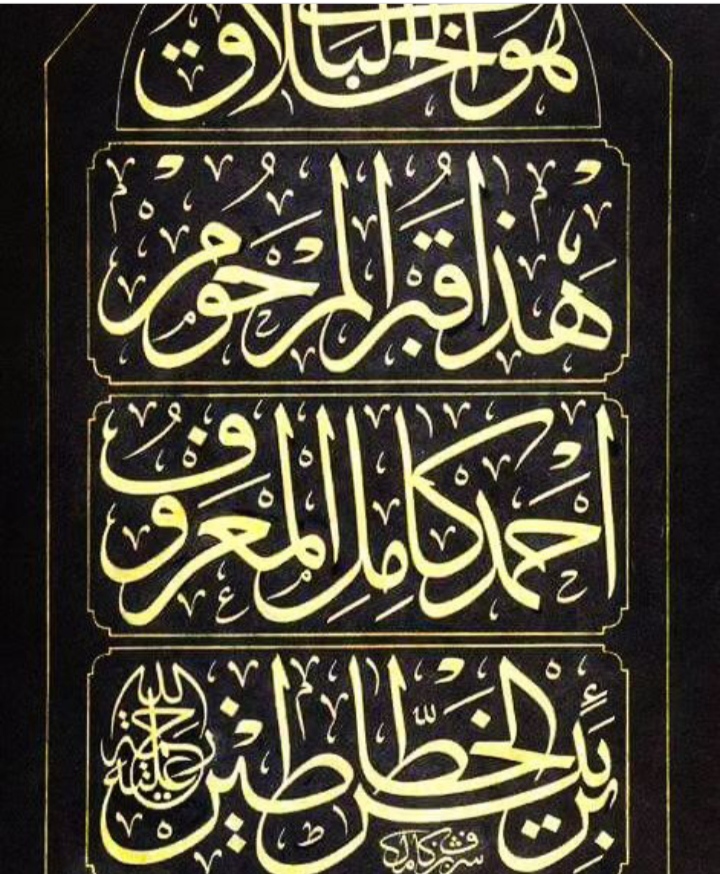 هو الخلاق الباقي
هذا قبر المرحوم
احمد كامل المعروف
برئيس الخطاطين رحمة الله عليه